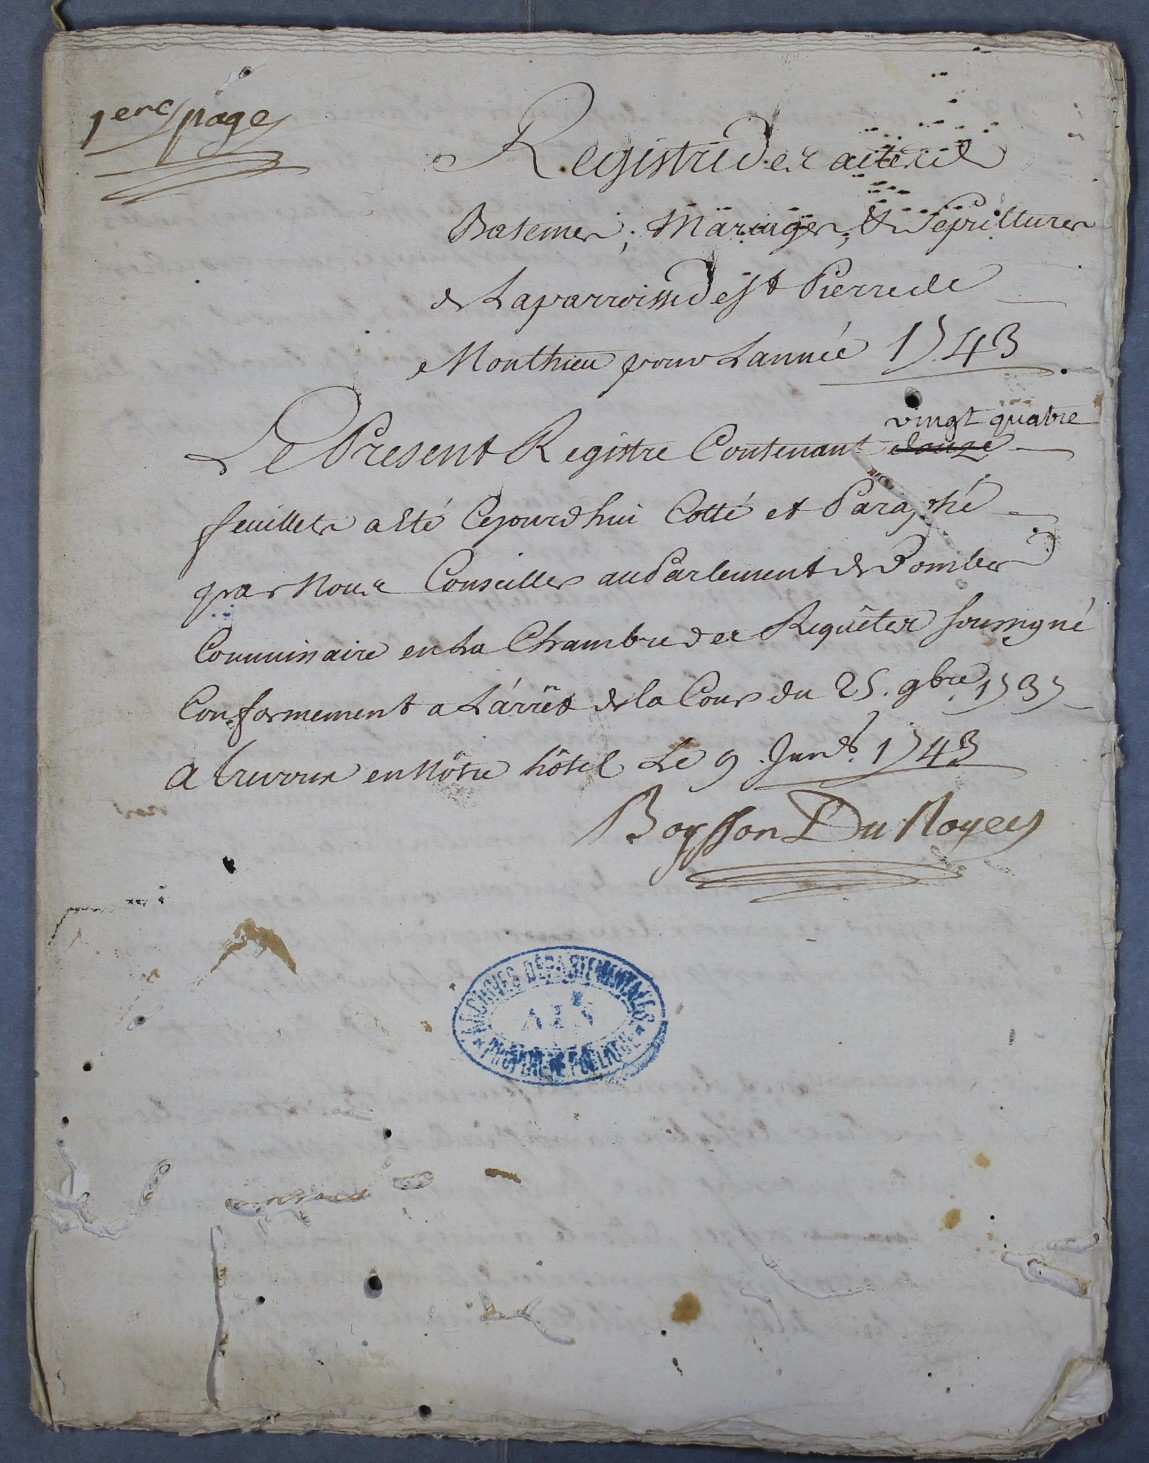 1ere page
Registre des actes de
Batemes, Mariages, & Sepultures
de La parroisse de st Pierre de
Monthieu pour Lannée 1743
vingt quatre
Le Present Registre Contenant douze
feuillets a Eté Cejourdhui Cotté et Paraphé
par Nous Conseiller au Parlement de Dombes
Commissaire en La Chambre des Requêtes soussigné
Conformement a L'arrêt de la Cour du 25. 9bre 1737
a Trevoux en Nôtre hôtel Le 9 Janv. 1743
Boysson Du Noyer
ARCHIVES DÉPARTEMENTALES
AIN
PROPRIÉTÉ PUBLIQUE